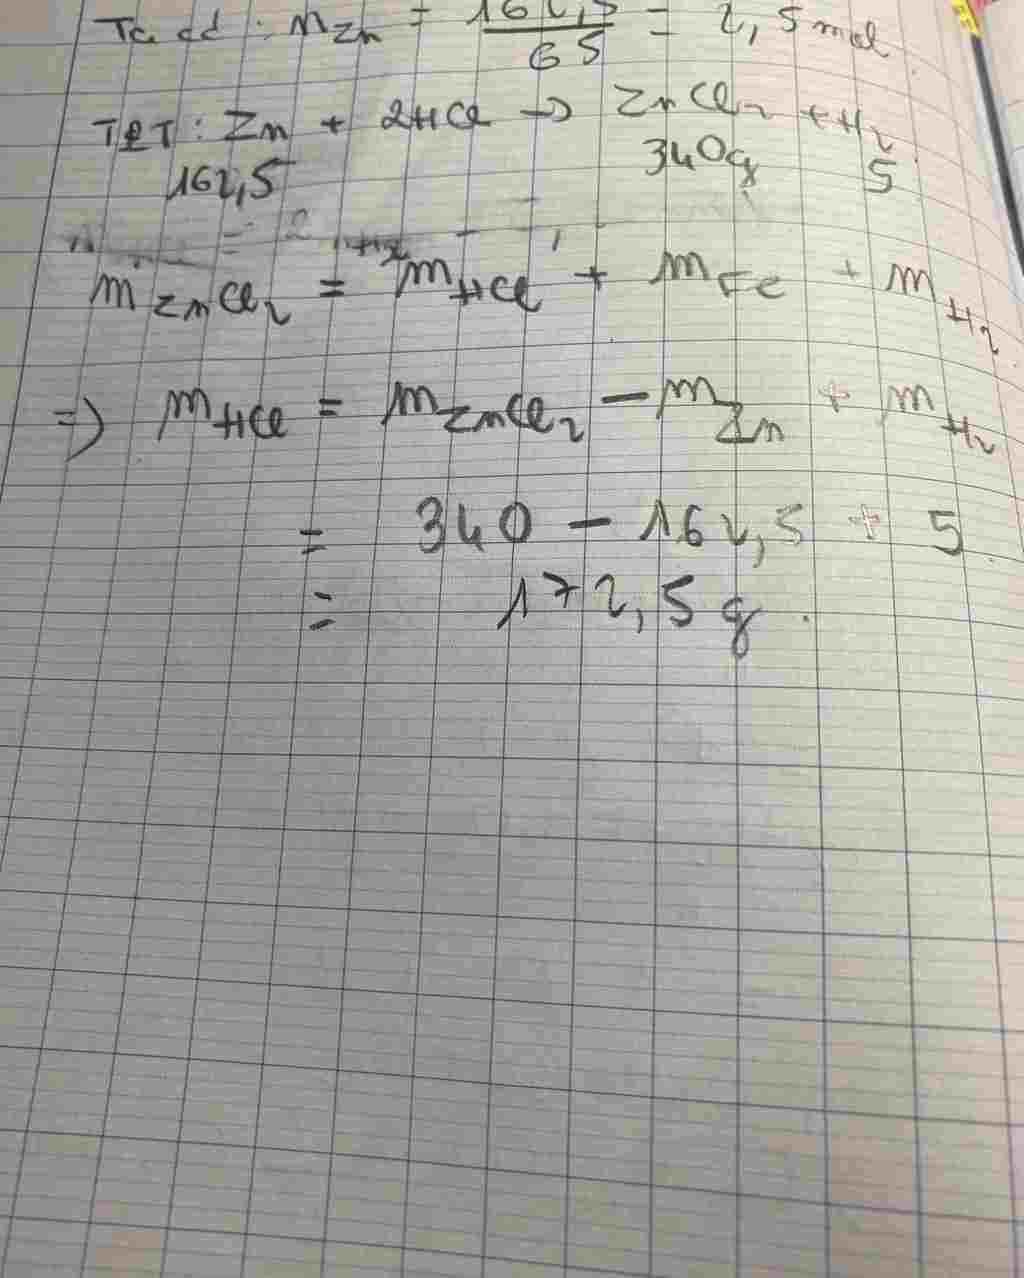 Ta cd : nZn = 162,5/65 = 2,5 mol
TPT : Zn + 2HCl → ZnCl2 + H2
162,5 340g 5
mZnCl2 = mHCl + mFe + mH2
=> mHCl = mZnCl2 - mZn + mH2
= 340 - 162,5 + 5
= 172,5 g.